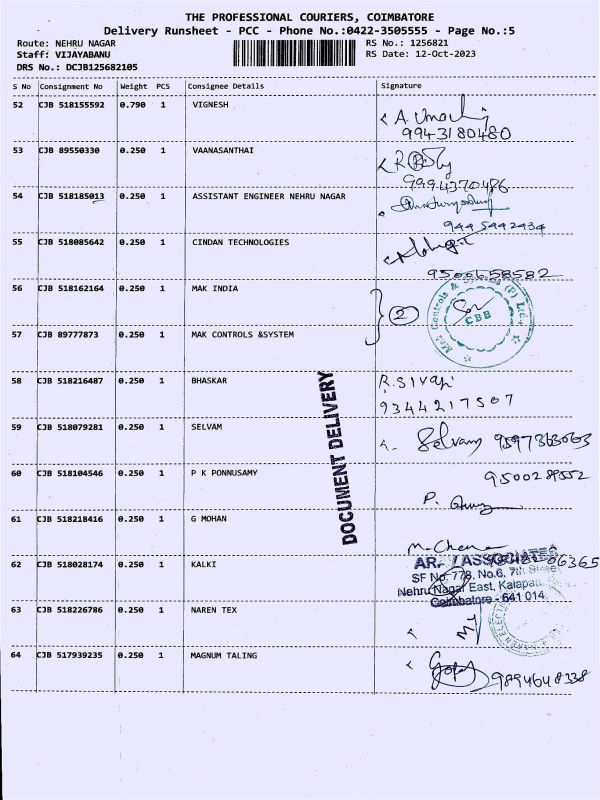 THE PROFESSIONAL COURIERS, COIMBATORE
Delivery Runsheet - PCC - Phone No.:0422-3505555 - Page No.:5
Route: NEHRU NAGAR RS No.: 1256821
Staff: VIJAYABANU RS Date: 12-Oct-2023
DRS No.: DCJB125682105
S No Consignment No Weight PCS Consignee Details Signature
52 CJB 518155592 0.790 1 VIGNESH
9943180480
53 CJB 89550330 0.250 1 VAANASANTHAI
9994370486
54 CJB 518185013 0.250 1 ASSISTANT ENGINEER NEHRU NAGAR
9445442434
55 CJB 518085642 0.250 1 CINDAN TECHNOLOGIES
9500658582
56 CJB 518162164 0.250 1 MAK INDIA
2
CBB
57 CJB 89777873 0.250 1 MAK CONTROLS &SYSTEM
58 CJB 518216487 0.250 1 BHASKAR R.SIVAP
9344217507
59 CJB 518079281 0.250 1 SELVAM Selvam 9597363063
60 CJB 518104546 0.250 1 P K PONNUSAMY 9500289552
P.
DOCUMENT DELIVERY
61 CJB 518218416 0.250 1 G MOHAN
ASSOCIATES
62 CJB 518028174 0.250 1 KALKI 06365
SF No-778, No.6, 7th Street
Nehru Nagar East, Kalapat
Coimbatore - 641 014.
63 CJB 518226786 0.250 1 NAREN TEX
64 CJB 517939235 0.250 1 MAGNUM TALING
9894648338